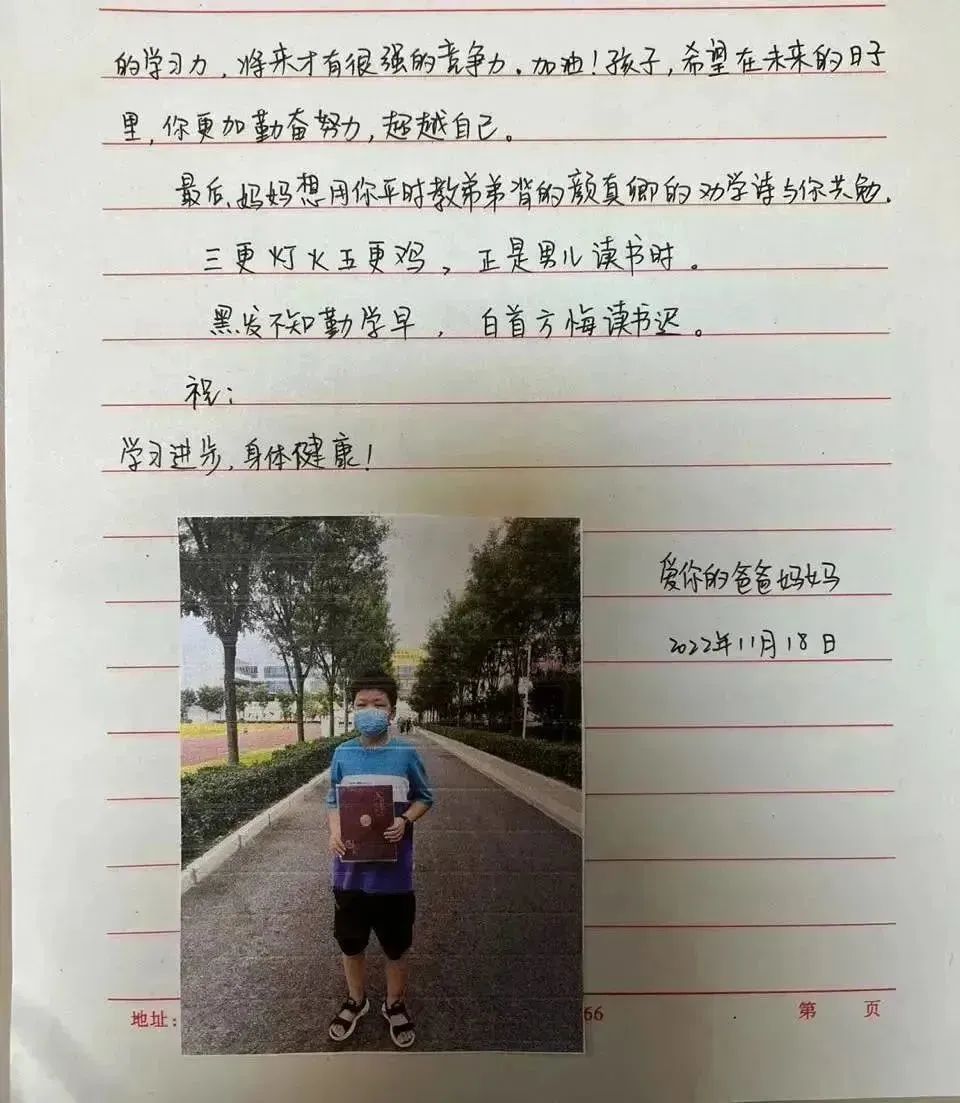 的学习力，将来才有很强的竞争力。加油！孩子，希望在未来的日子
里，你更加勤奋努力，超越自己。
最后，妈妈想用你平时教弟弟背的颜真卿的劝学诗与你共勉.
三更灯火五更鸡，正是男儿读书时。
黑发不知勤学早，白首方悔读书迟。
祝：
学习进步，身体健康！
爱你的爸爸妈妈
2022年11月18日
地址：
66
第 页